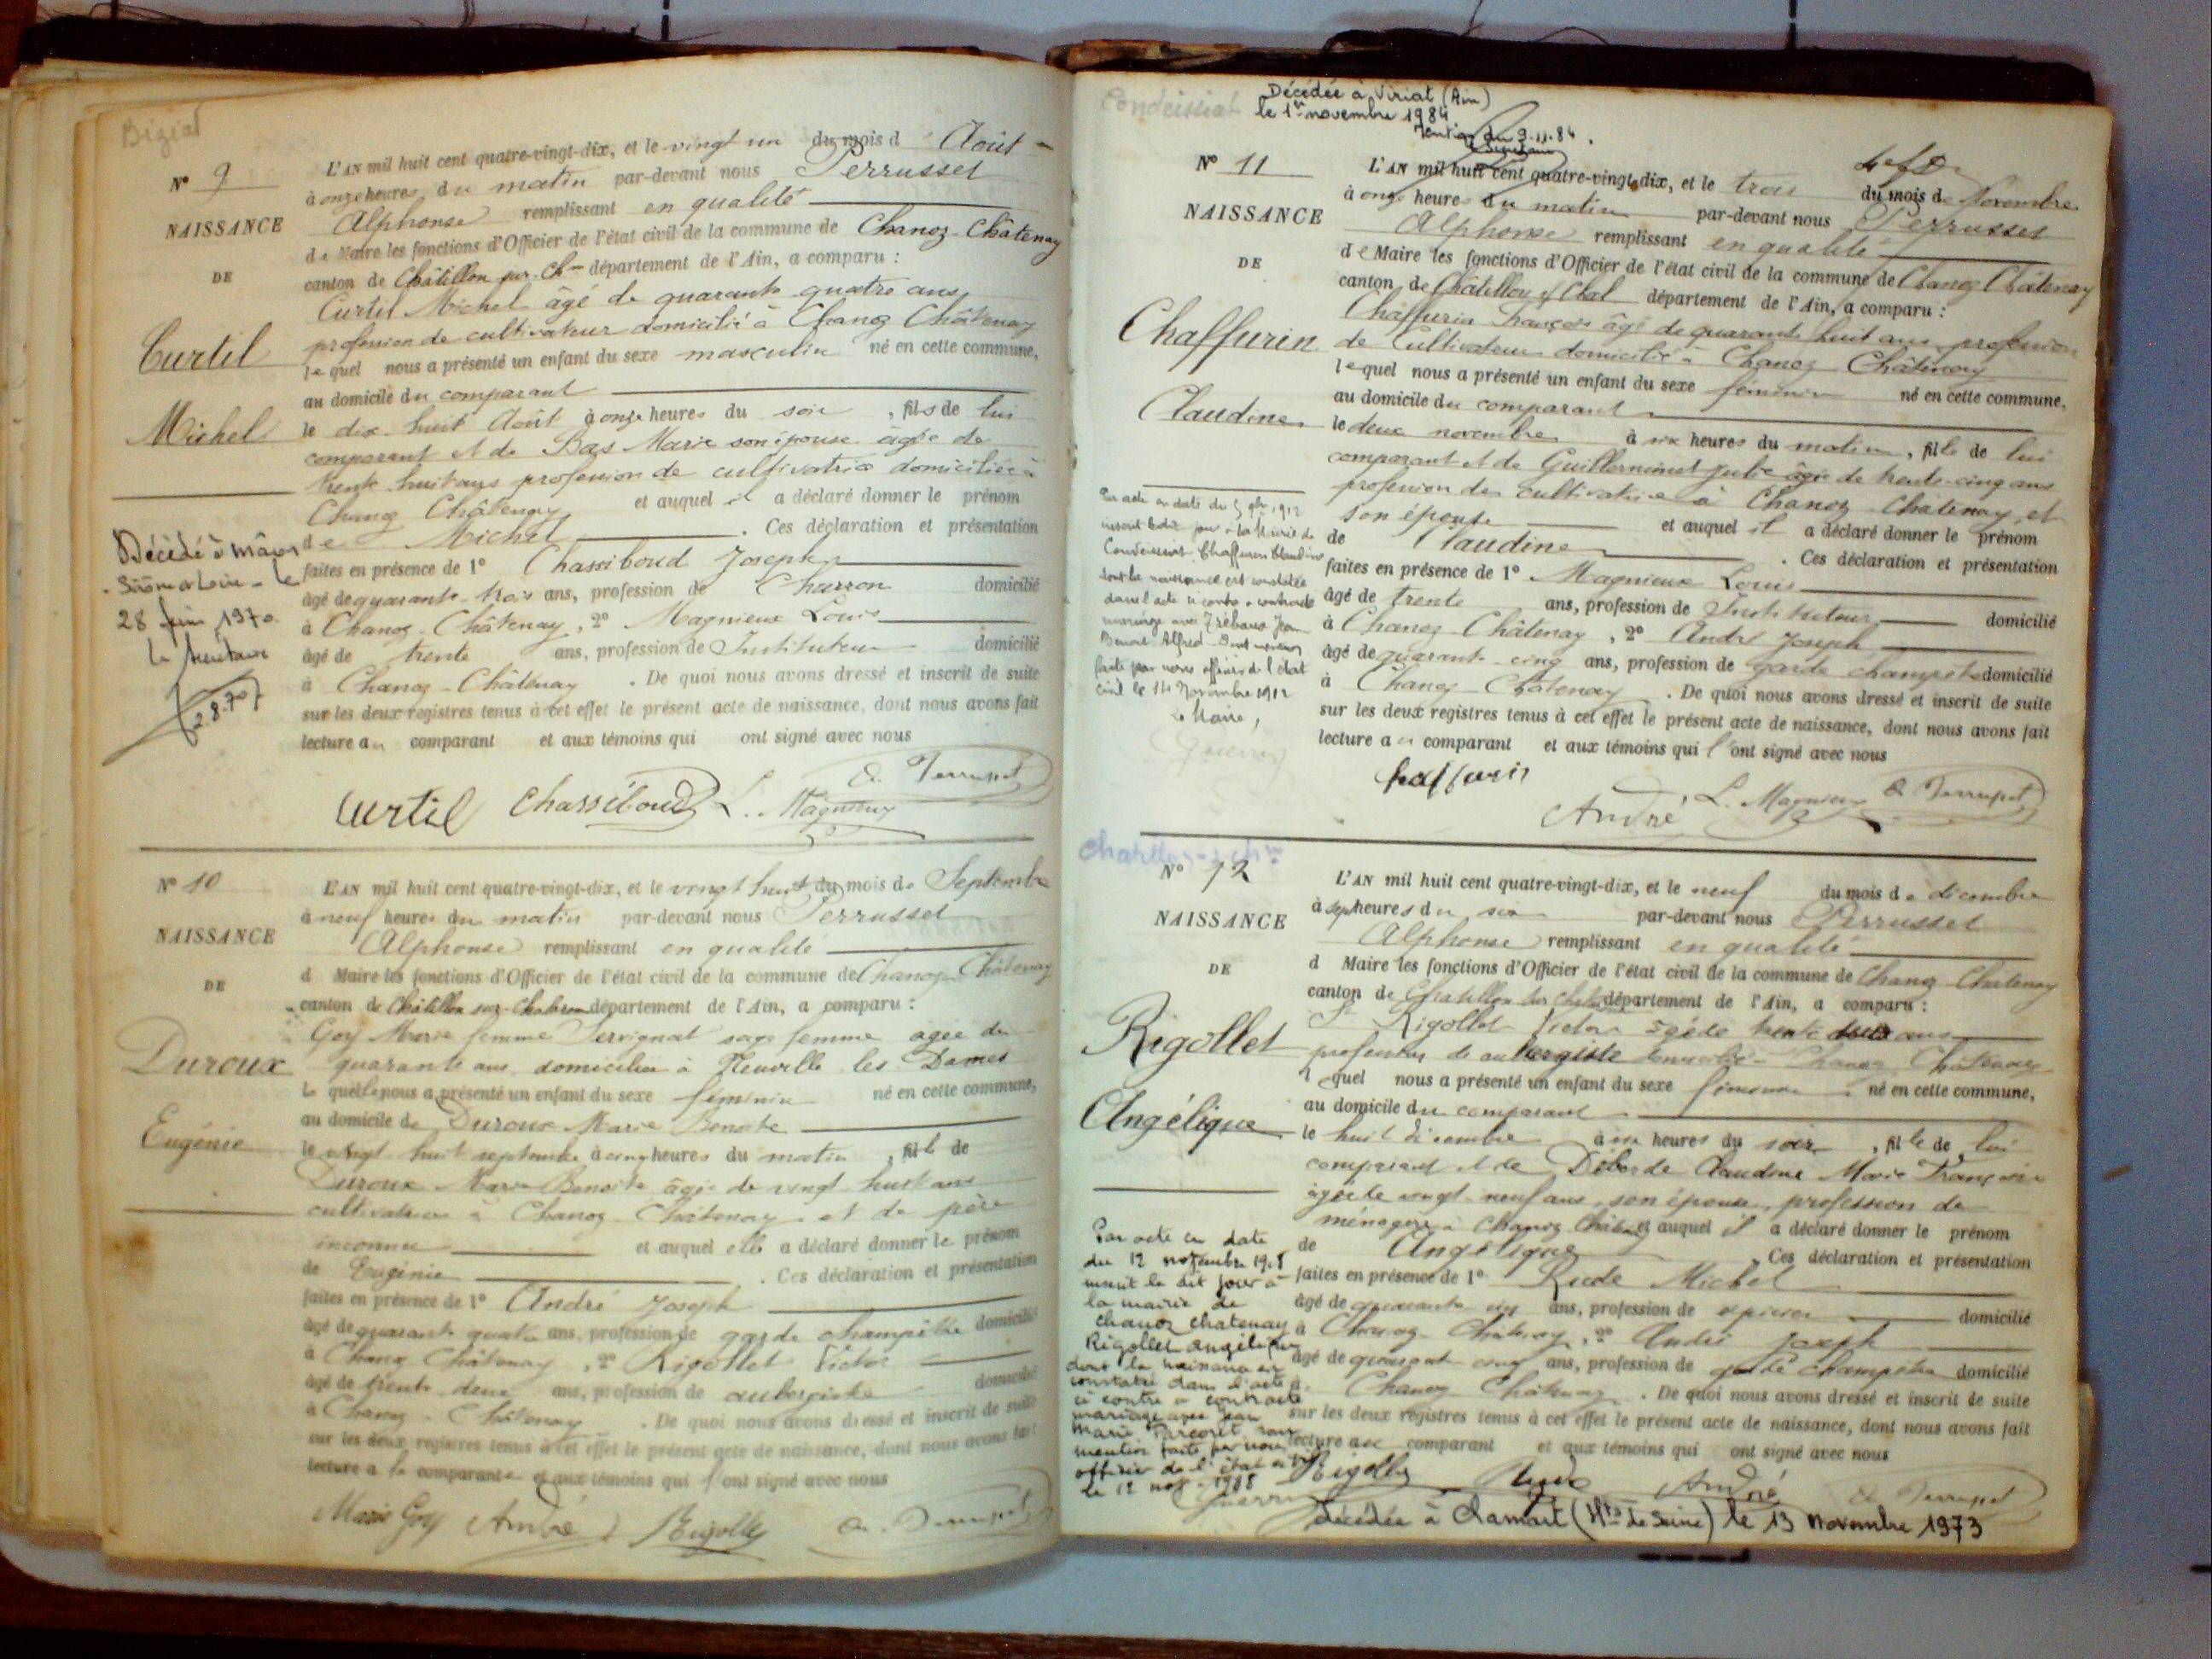 Biziat
N° 9
NAISSANCE
DE
Curtil
Michel
L'AN mil huit cent quatre-vingt-dix, et le vingt un du mois d'Août
à onze heures du matin par-devant nous Perrusset
Alphonse remplissant en qualité
de Maire les fonctions d'Officier de l'état civil de la commune de Chanoz-Châtenay
canton de Châtillon sur Chne département de l'Ain, a comparu :
Curtil Michel âgé de quarante quatre ans,
profession de cultivateur domicilié à Chanoz Châtenay
lequel nous a présenté un enfant du sexe masculin né en cette commune,
au domicile du comparant
le dix-huit Août à onze heures du soir, fils de lui
comparant et de Bas Marie son épouse âgée de
trente huit ans profession de cultivatrice domiciliée à
Chanoz Châtenay et auquel il a déclaré donner le prénom
de Michel . Ces déclaration et présentation
faites en présence de 1° Chassiboud Joseph
âgé de quarante-trois ans, profession de Charron domicilié
à Chanoz-Châtenay, 2° Magnieux Louis
âgé de trente ans, profession de Instituteur domicilié
à Chanoz-Châtenay . De quoi nous avons dressé et inscrit de suite
sur les deux registres tenus à cet effet le présent acte de naissance, dont nous avons fait
lecture au comparant et aux témoins qui ont signé avec nous
Curtil Chassiboud L. Magnieux A. Perrusset
Décédé à Mâcon
Saône et Loire - le
28 juin 1970
Le Secrétaire
N° 10
NAISSANCE
DE
Duroux
Eugénie
L'AN mil huit cent quatre-vingt-dix, et le vingt huit du mois de Septembre
à neuf heures du matin par-devant nous Perrusset
Alphonse remplissant en qualité
d Maire les fonctions d'Officier de l'état civil de la commune de Chanoz-Châtenay
canton de Châtillon sur Chalaronne département de l'Ain, a comparu :
Goy Marie femme Servignat sage femme âgée de
quarante ans domiciliée à Neuville les Dames
Laquelle nous a présenté un enfant du sexe féminin né en cette commune,
au domicile de Duroux Marie Benoite
le vingt huit septembre à cinq heures du matin, fille de
Duroux Marie Benoite âgée de vingt huit ans
cultivatrice à Chanoz-Châtenay et de père
inconnu et auquel elle a déclaré donner le prénom
de Eugénie . Ces déclaration et présentation
faites en présence de 1° André Joseph
âgé de quarante quatre ans, profession de garde champêtre domicilié
à Chanoz Châtenay, 2° Rigollet Victor
âgé de trente deux ans, profession de aubergiste domicilié
à Chanoz-Châtenay . De quoi nous avons dressé et inscrit de suite
sur les deux registres tenus à cet effet le présent acte de naissance, dont nous avons fait
lecture a la comparante et aux témoins qui l'ont signé avec nous
Marie Goy André Rigollet A. Perrusset
Condeissiat
Décédée à Viriat (Ain)
le 1er novembre 1984
Mention du 9.11.84.
N° 11
NAISSANCE
DE
Chaffurin
Claudine
L'AN mil huit cent quatre-vingt-dix, et le trois du mois de Novembre
à onze heures du matin par-devant nous Perrusset
Alphonse remplissant en qualité
de Maire les fonctions d'Officier de l'état civil de la commune de Chanoz Châtenay
canton de Châtillon s/ Chal département de l'Ain, a comparu :
Chaffurin François âgé de quarante huit ans profession
de Cultivateur domicilié à Chanoz Châtenay
lequel nous a présenté un enfant du sexe féminin né en cette commune,
au domicile du comparant
le deux novembre à six heures du matin, fille de lui
comparant et de Guilleminet Julie âgée de trente-cinq ans
profession de cultivatrice à Chanoz-Châtenay, et
son épouse et auquel il a déclaré donner le prénom
de Claudine . Ces déclaration et présentation
faites en présence de 1° Magnieux Louis
âgé de trente ans, profession de Instituteur domicilié
à Chanoz-Châtenay, 2° André Joseph
âgé de quarante-cinq ans, profession de garde champêtre domicilié
à Chanoz-Châtenay . De quoi nous avons dressé et inscrit de suite
sur les deux registres tenus à cet effet le présent acte de naissance, dont nous avons fait
lecture au comparant et aux témoins qui l'ont signé avec nous
Chaffurin
André L. Magnieux A. Perrusset
Par acte en date du 9bre 1912
inscrit ledit jour à la Mairie de
Condeissiat Chaffurin Claudine
dont la naissance est constatée
dans l'acte ci contre a contracté
mariage avec Trébaux Jean
Benoit Alfred. Dont mention
faite par nous officier de l'état
civil le 14 Novembre 1912
Le Maire,
N° 12
NAISSANCE
DE
Rigollet
Angélique
L'AN mil huit cent quatre-vingt-dix, et le neuf du mois de décembre
à sept heures du soir par-devant nous Perrusset
Alphonse remplissant en qualité
d Maire les fonctions d'Officier de l'état civil de la commune de Chanoz-Châtenay
canton de Châtillon sur Chalar département de l'Ain, a comparu :
Sr Rigollet Victor âgé de trente deux ans
profession de aubergiste domicilié à Chanoz Châtenay
l quel nous a présenté un enfant du sexe féminin né en cette commune,
au domicile du comparant
le huit décembre à heures du soir, fille de lui
comparant et de Déborde Claudine Marie Françoise
âgée de vingt-neuf ans, son épouse, profession de
ménagère à Chanoz Châtenay et auquel il a déclaré donner le prénom
de Angélique . Ces déclaration et présentation
faites en présence de 1° Rude Michel
âgé de quarante ans, profession de épicier domicilié
à Chanoz-Châtenay, 2° André Joseph
âgé de quarante cinq ans, profession de garde champêtre domicilié
à Chanoz Châtenay . De quoi nous avons dressé et inscrit de suite
sur les deux registres tenus à cet effet le présent acte de naissance, dont nous avons fait
lecture au comparant et aux témoins qui ont signé avec nous
Rigollet Rude André A. Perrusset
Par acte en date
du 12 novembre 1918
inscrit le dit jour à
la mairie de
chanoz chatenay
Rigollet angélique
dont la naissance est
constatée dans l'acte
ci contre a contracté
mariage avec jean
marie
mention faite par nous
officier de l'état civil
le 12 nov. 1918
Décédée à Clamart (Hts de Seine) le 13 novembre 1973